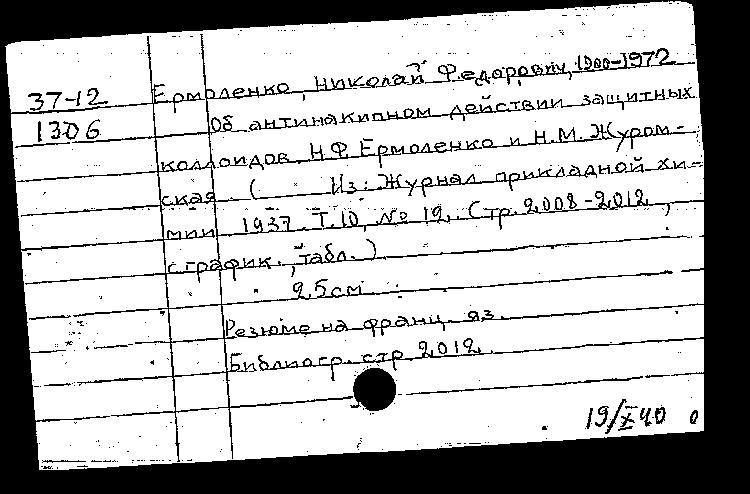 37-12 Ермоленко, Николай Федорович, 1900-1972
1306 Об антинакипном действии защитных
коллоидов. Н.Ф. Ермоленко и Н.М. Журом-
ская. ( Из: Журнал прикладной хи-
мии 1937. Т. 10, № 12. (Стр. 2008-2012,
с график., табл.)
25см
Резюме на франц. яз.
Библиогр. стр. 2012.
19/X 40